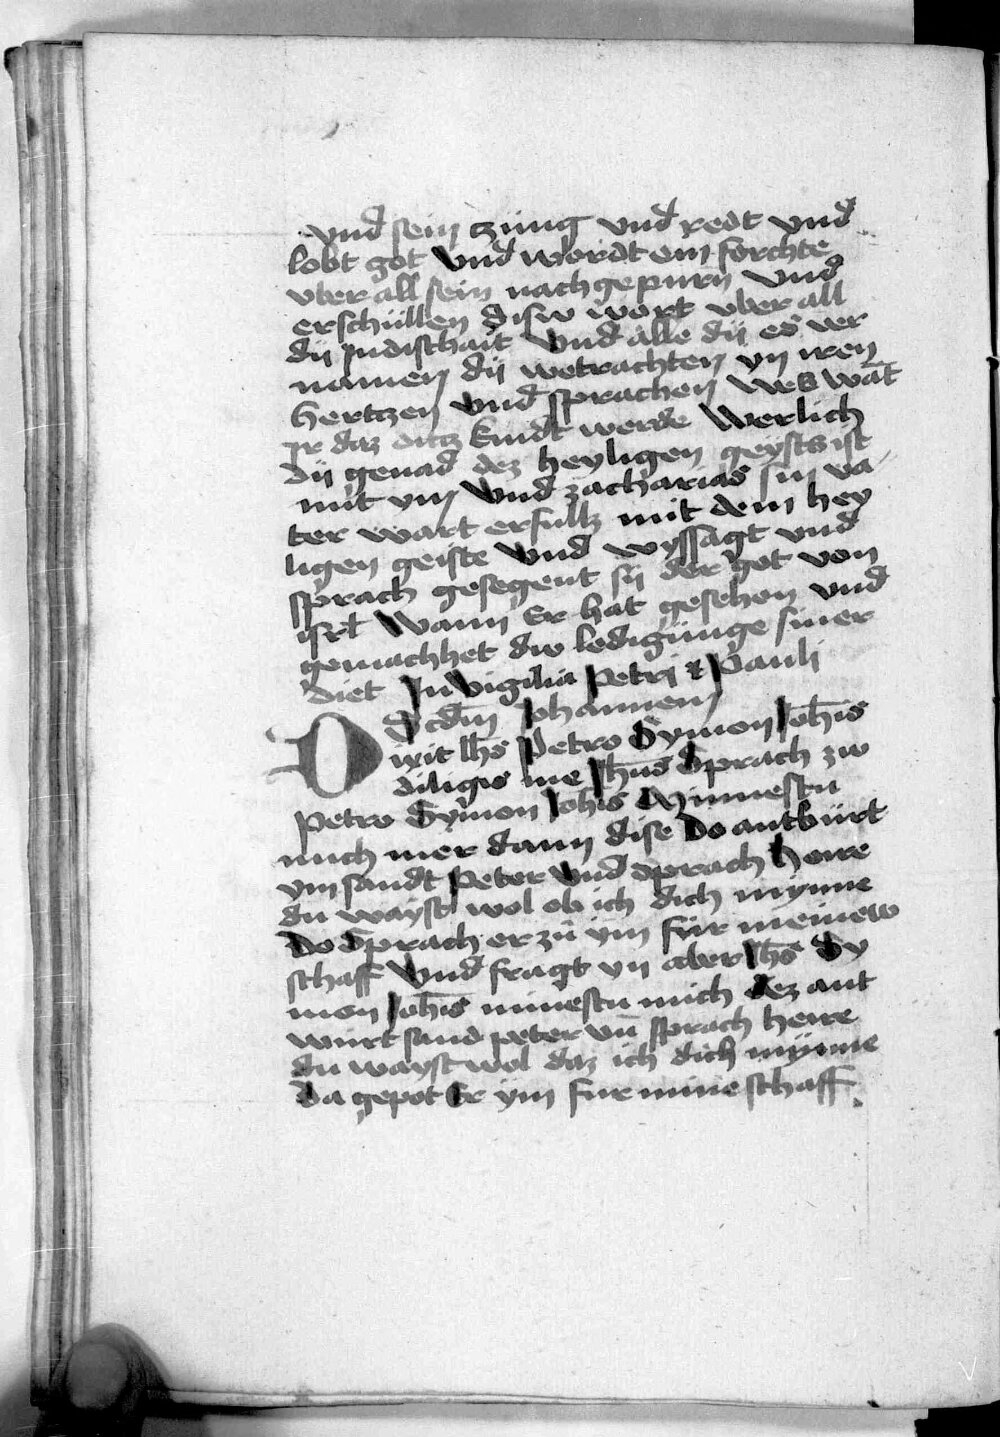 vnd sein czüng vnd redt vnd
lobt got vnd wordt ein forchte
vber all sein nachgepurn vnd
erschüllen disw wort vber all
dÿ Judischait vnd alle dÿ es ver
namen dÿ wetrachten yn iren
hertzen vnd sprachen wes wāt
ir daz ditz kindt werde Werlich
dÿ genad dez heyligen geysts ist
mit ym vnd zacharias sin va
ter wart erfullz mit dem hey
ligen geiste vnd wyssagt vnd
sprach gesegent sÿ der got von
isrl Wann Er hat gesehen vnd
gemachhet dw ledigünge siner
diet In vigilia Petri et Pauli
Scdm Johannem
Dixit Ihs Petro Symon Johis
diligis me Jhus Sprach zw
Petro Symon Johis Minnestu
mich mer dann dise Do antbürt
ym sandt Peter vnd sprach herre
du wayst wol ob ich dich mynne
Do Sprach er zü ym für meinew
schaff Vnd fragt yn aber Jhs Sy
mon Johis minestu mich dez ant
wurt sand peter vn̄ sprach herre
du wayst wol daz ich dich mynne
Da gepot Er ym fur mine schaff